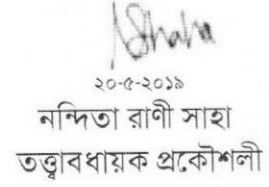 Nsaha
২০-৫-২০১৯
নন্দিতা রাণী সাহা
তত্ত্বাবধায়ক প্রকৌশলী